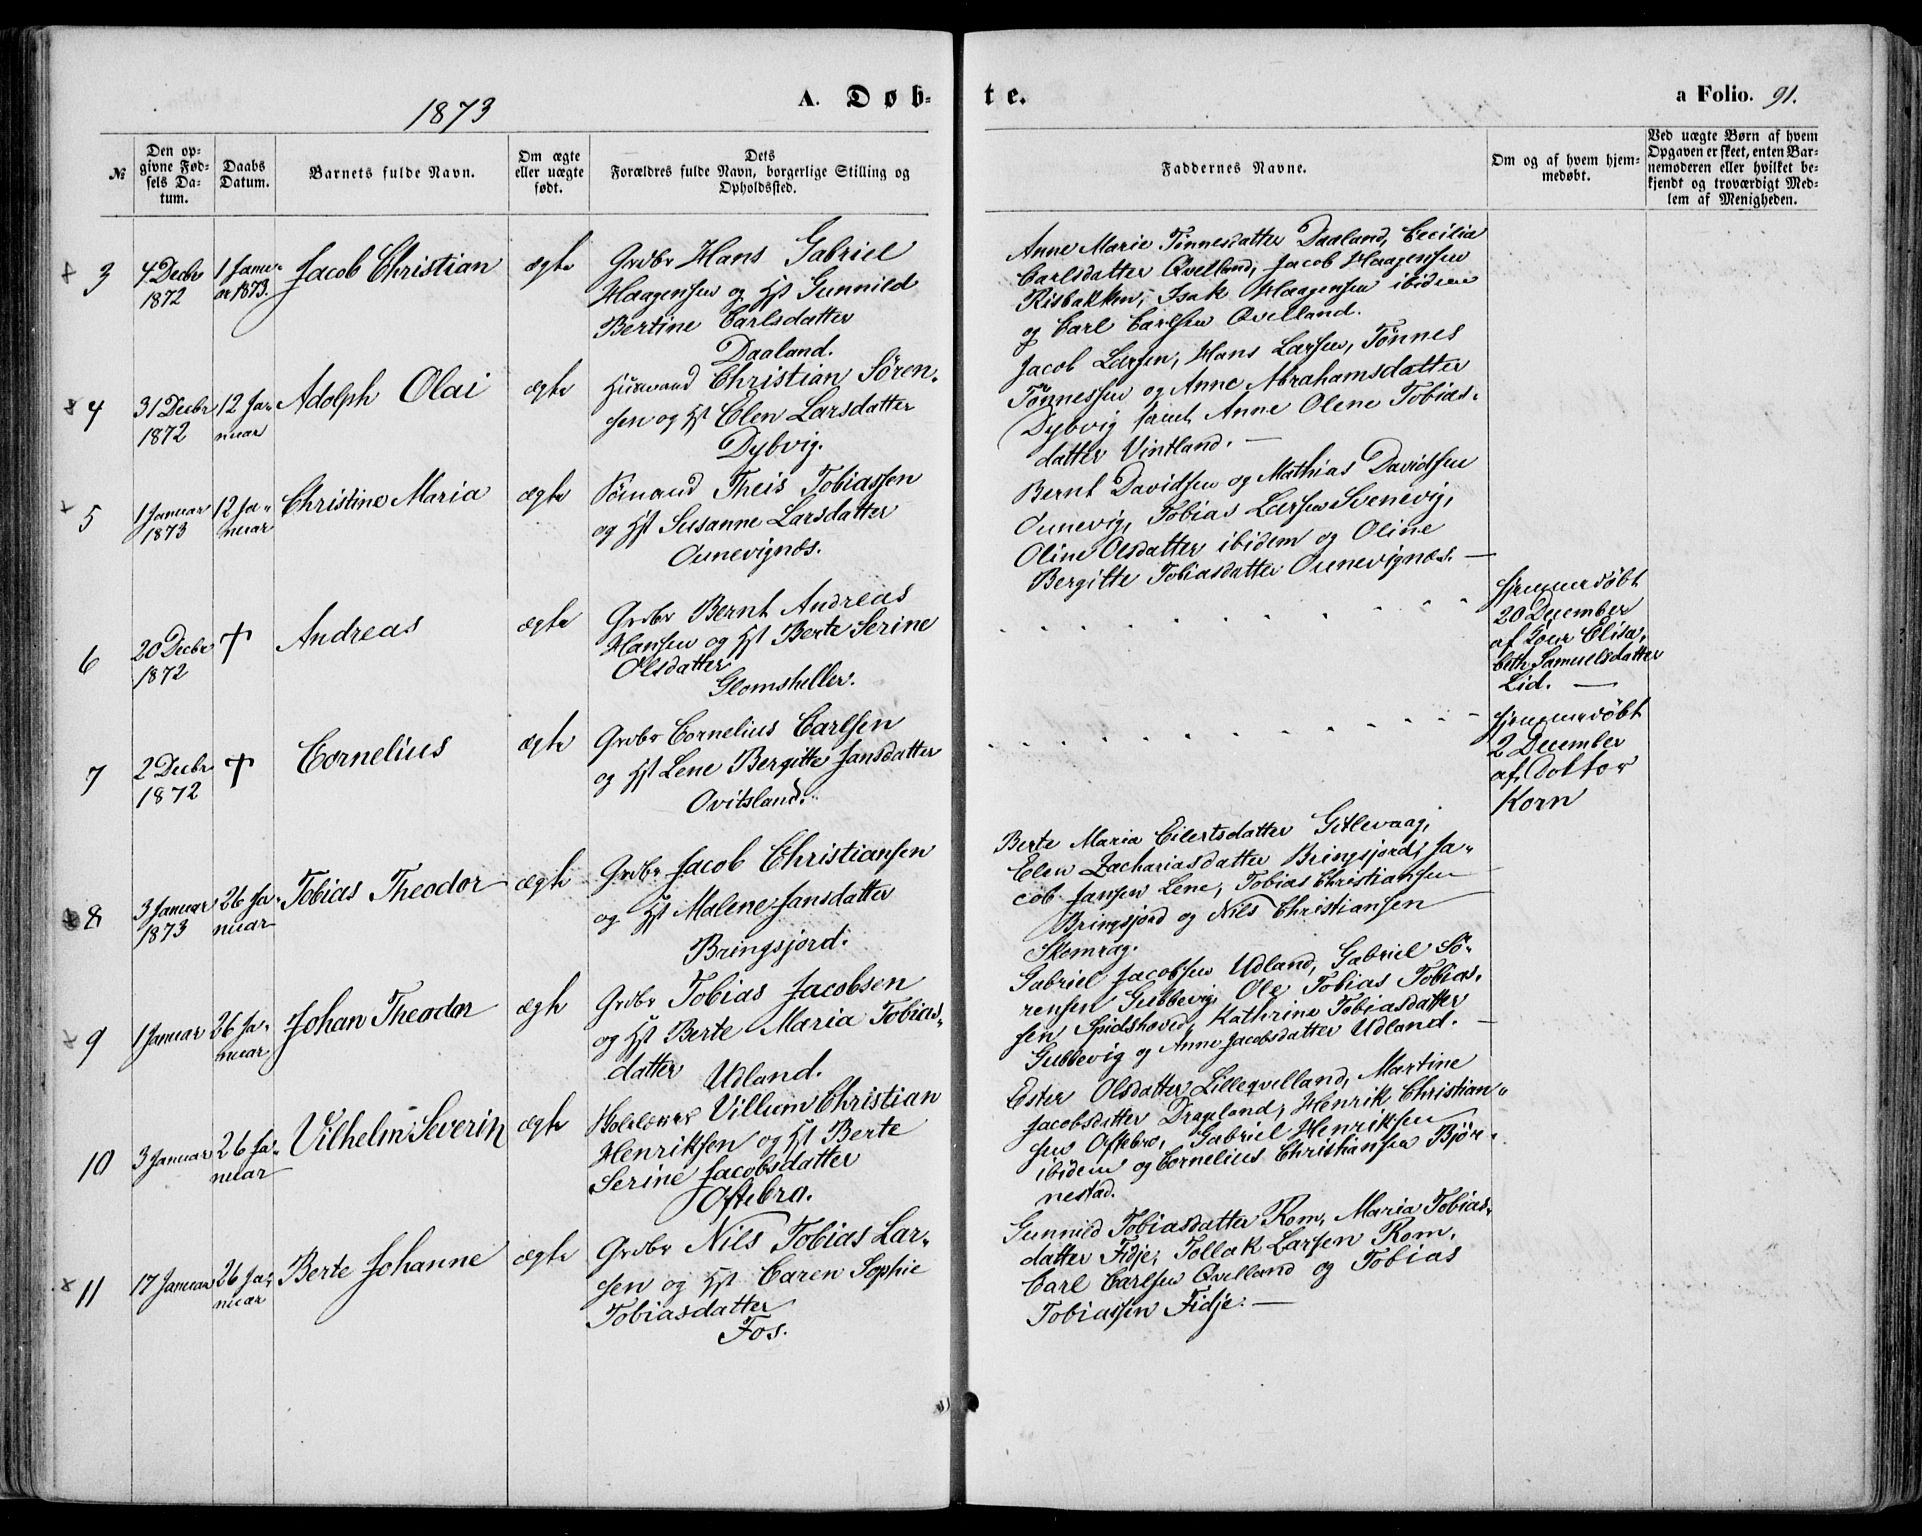 1873
A. Døb-
te.
a Folio. 91.
№
Den op-
givne Fød-
sels Da-
tum.
Daabs
Datum.
Barnets fulde Navn.
Om ægte
eller uægte
født.
Dets
Forældres fulde Navn, borgerlige Stilling og
Opholdssted.
Faddernes Navne.
Om og af hvem hjem-
medøbt.
Ved uægte Børn af hvem
Opgaven er skeet, enten Bar-
nemoderen eller hvilket be-
kjendt og troværdigt Med-
lem af Menigheden.
3
4 Decbr
1872
1 Janu-
ar 1873.
Jacob Christian
ægte
Grdbr Hans Gabriel
Haagensen og Hst Gunnild
Bertine Carlsdatter
Daaland.
Anne Marie Tønnesdatter Daaland, Cecilia
Carlsdatter Qvelland, Jacob Haagensen
Risbakken, Isak Haagensen ibidem
og Carl Carlsen Qvelland.
4
31 Decbr
1872
12 Ja-
nuar
Adolph Olai
ægte
Huusmand Christian Søren-
sen og Hst Elen Larsdatter
Dybvig.
Jacob Larsen, Hans Larsen, Tønnes
Tønnessen og Anne Abrahamsdatter
Dybvig samt Anne Olene Tobias-
datter Vintland. —
5
1 Januar
1873
12 Ja-
nuar
Christine Maria
ægte
Sømand Theis Tobiassen
og Hst Susanne Larsdatter
Ounevignæs.
Bernt Davidsen og Mathias Davidsen
Ounevig, Tobias Larsen Svenevig,
Oline Olsdatter ibidem og Oline
Bergitte Tobiasdatter Ounevignæs. —
6
20 Decbr
1872
†
Andreas
ægte
Grdbr Bernt Andreas
Hansen og Hst Berte Serine
Olsdatter
Glomsheller.
hjemmedøbt
20 December
af Elisa-
beth Samuelsdatter
Lid. —
7
2 Decbr
1872
†
Cornelius
ægte
Grdbr Cornelius Carlsen
og Hst Lene Bergitte Jansdatter
Ovitsland.
hjemmedøbt
2 December
af Doktor
Korn
8
3 Januar
1873
26 Ja-
nuar
Tobias Theodor
ægte
Grdbr Jacob Christiansen
og Hst Malene Jansdatter
Bringsjord.
Berte Maria Eilertsdatter Gitlevaag,
Elen Zachariasdatter Bringsjord, Ja-
cob Jansen Lene, Tobias Christiansen
Bringsjord og Nils Christiansen
Skomrag.
9
1 Januar
26 Ja-
nuar
Johan Theodor
ægte
Grdbr Tobias Jacobsen
og Hst Berte Maria Tobias-
datter Udland.
Gabriel Jacobsen Udland, Gabriel Sø-
rensen Gubbevig, Ole Tobias Tobias-
sen Spidshoved, Kathrine Tobiasdatter
Gubbevig og Anne Jacobsdatter Udland. —
10
3 Januar
26 Ja-
nuar
Vilhelm Severin
ægte
Skolelærer Villum Christian
Henriksen og Hst Berte
Serine Jacobsdatter
Oftebro.
Ester Olsdatter Lilleqvelland, Martine
Jacobsdatter Dragland, Henrik Christian-
sen Oftebro, Gabriel Henriksen
ibidem og Cornelius Christiansen Bjør-
nestad.
11
17 Januar
26 Ja-
nuar
Berte Johanne
ægte
Grdbr Nils Tobias Lar-
sen og Hst Caren Sophie
Tobiasdatter
Fos.
Gunnild Tobiasdatter Rom, Maria Tobias-
datter Fidje, Tollak Larsen Rom,
Carl Carlsen Qvelland og Tobias
Tobiassen Fidje. —